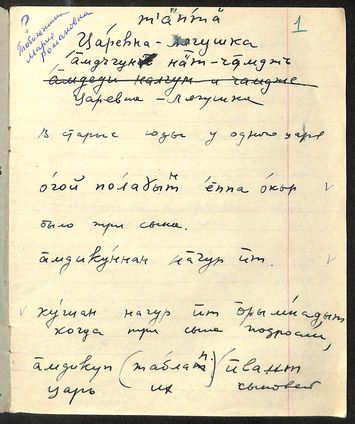 Тобольжина
Мария
Романовна
1
тӓптӓ
Царевна-лягушка
а̄мдъгун нӓт-чамджь
а̄мдеди
и чамдже
царевна-лягушка
В старые годы у одного царя
о́гой по́лаҕын е́ппа о́кыр
было три сына.
а̄мдику́ннан на́гур ӣт.
ку́шан нагур ӣт о̄рымна́дыт
когда три сына подросли,
а̄мдикуп (таблап) ӣвант
царь их сыновей